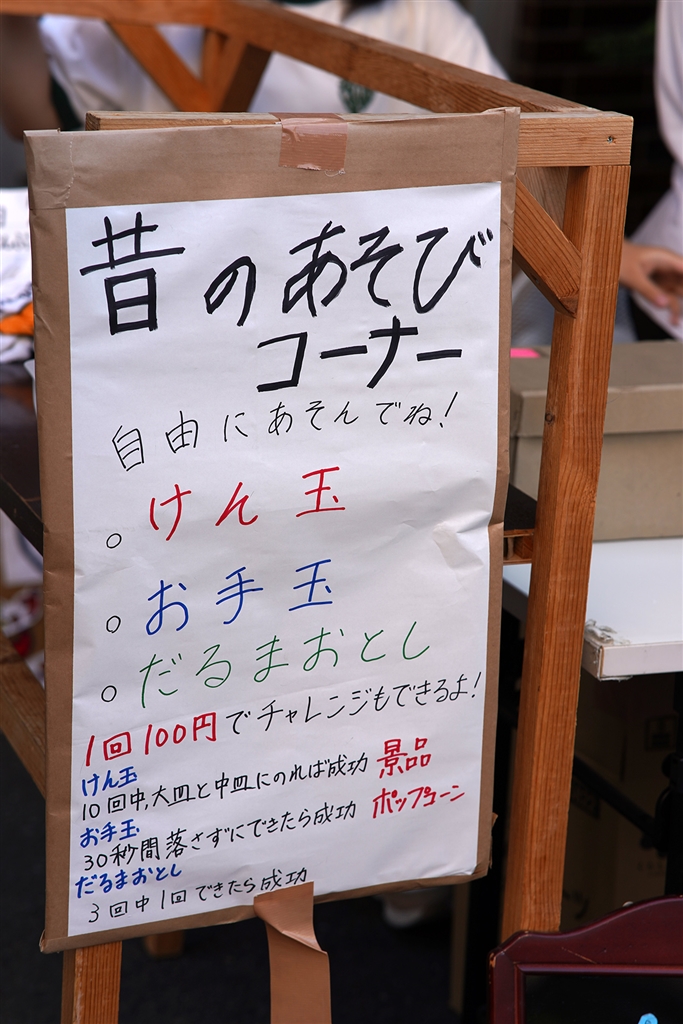 昔のあそび
コーナー
自由にあそんでね!
○ けん玉
○ お手玉
○ だるまおとし
1回100円でチャレンジもできるよ!
けん玉
10回中,大皿と中皿にのれば成功
お手玉
30秒間落さずにできたら成功
だるまおとし
3回中1回できたら成功
景品
ポップコーン